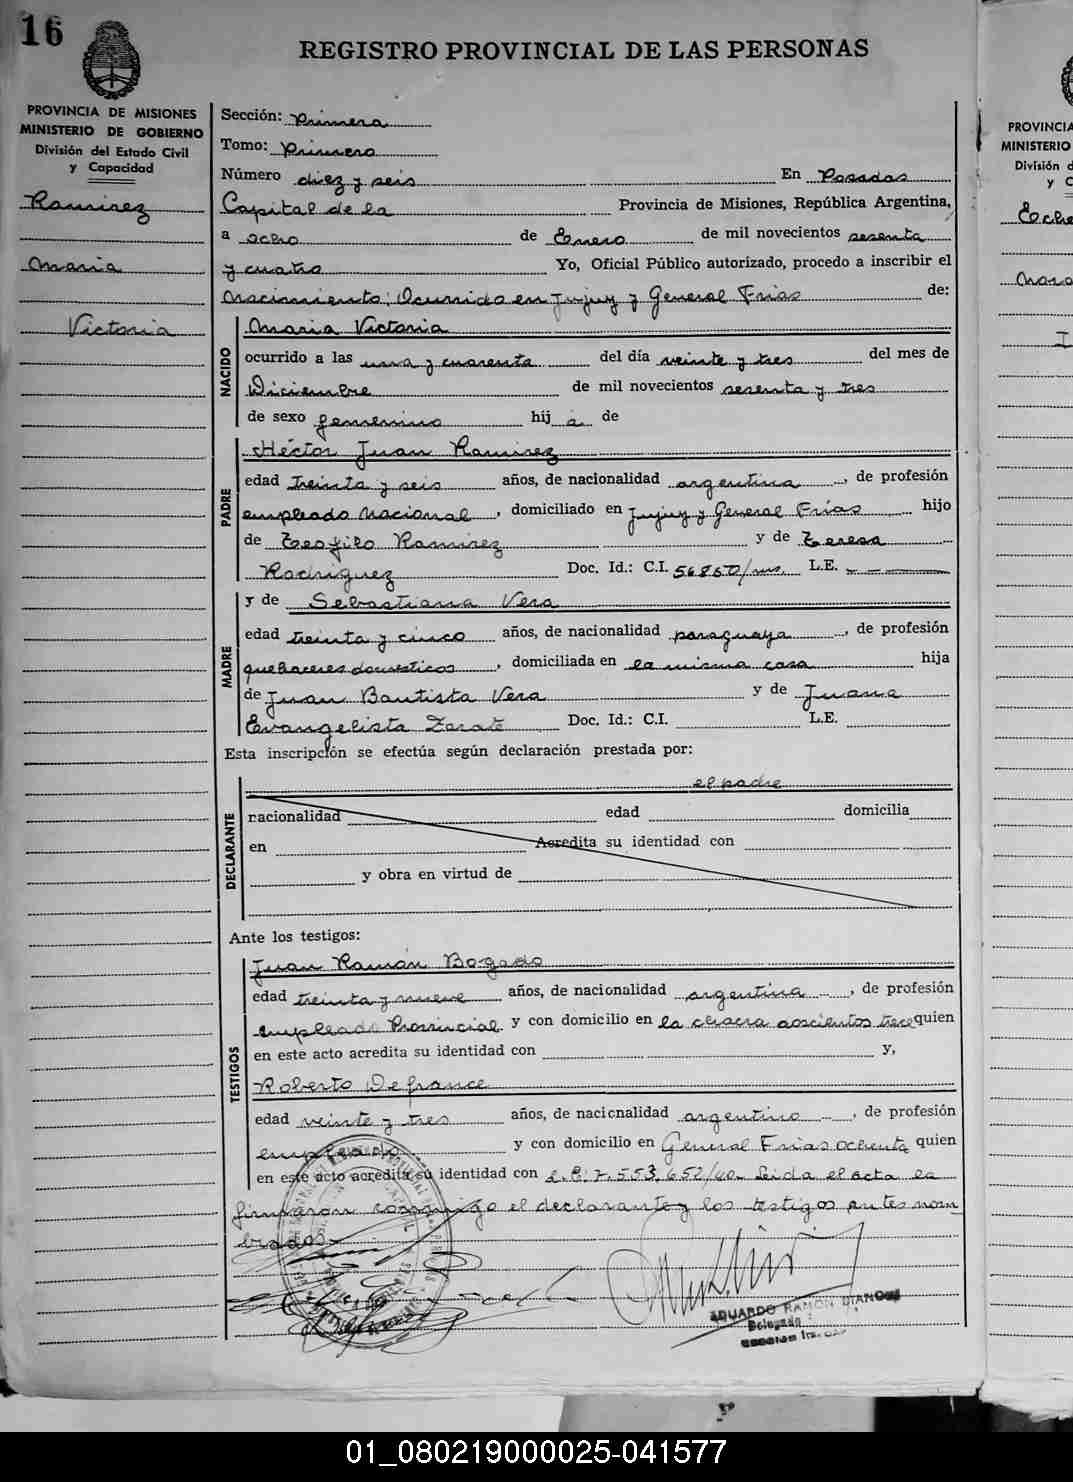 16
REGISTRO PROVINCIAL DE LAS PERSONAS
PROVINCIA DE MISIONES
MINISTERIO DE GOBIERNO
División del Estado Civil
y Capacidad
Ramirez
Maria
Victoria
Sección: Primera
Tomo: Primero
Número diez y seis En Posadas
Capital de la Provincia de Misiones, República Argentina,
a ocho de Enero de mil novecientos sesenta
y cuatro Yo, Oficial Público autorizado, procedo a inscribir el
nacimiento: Ocurrido en Jujuy y General Frias de:
NACIDO
Maria Victoria
ocurrido a las una y cuarenta del día veinte y tres del mes de
Diciembre de mil novecientos sesenta y tres
de sexo femenino hij a de
PADRE
Héctor Juan Ramirez
edad treinta y seis años, de nacionalidad argentina, de profesión
empleado Nacional, domiciliado en Jujuy y General Frías hijo
de Teofilo Ramirez y de Teresa
Rodriguez Doc. Id.: C.I. 56850/ms. L.E. — — —
MADRE
y de Sebastiana Vera
edad treinta y cinco años, de nacionalidad paraguaya, de profesión
quehaceres domesticos, domiciliada en la misma casa hija
de Juan Bautista Vera y de Juana
Evangelista Zarate Doc. Id.: C.I. L.E.
Esta inscripción se efectúa según declaración prestada por:
DECLARANTE
el padre
nacionalidad edad domicilia
en Acredita su identidad con
y obra en virtud de
Ante los testigos:
TESTIGOS
Juan Ramón Bogado
edad treinta y nueve años, de nacionalidad argentina, de profesión
empleado Provincial y con domicilio en la chacra doscientos trece quien
en este acto acredita su identidad con y,
Roberto Defrance
edad veinte y tres años, de nacionalidad argentino, de profesión
empleado y con domicilio en General Frias ochenta quien
en este acto acredita su identidad con L.E. 7.553.652/40- Leida el acta la
firmaron conmigo el declarante y los testigos antes nom
brados-
EDUARDO RAMON
Delegado
PROVINCIA
MINISTERIO
División d
y C
01_080219000025-041577